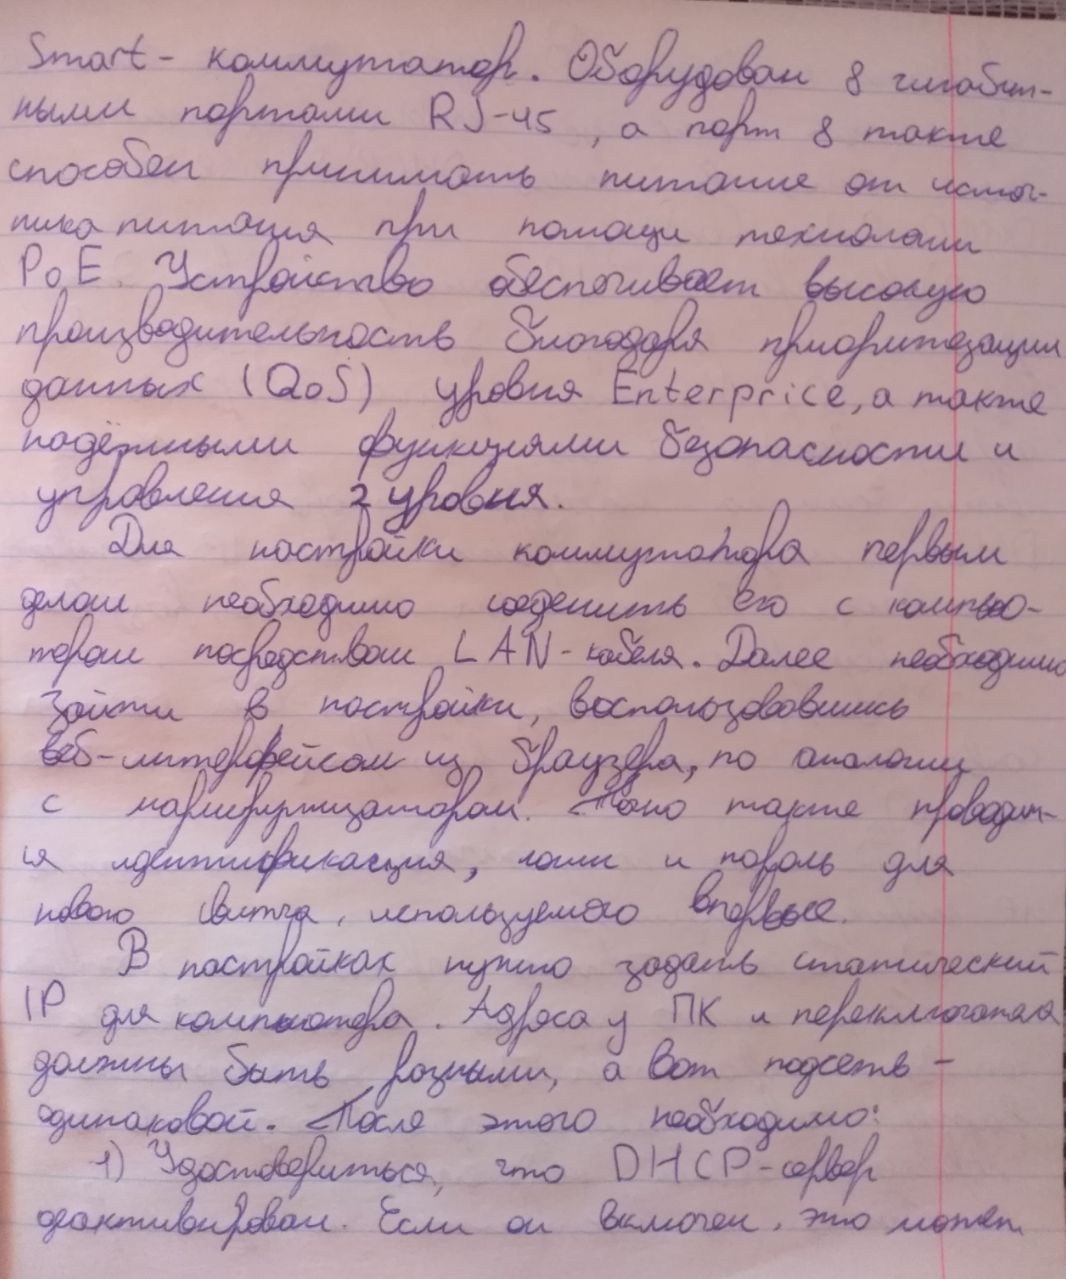 Smart - коммутатор. Оборудован 8 гигабит-
ными портами RJ-45, а порт 8 также
способен принимать питание от источ-
ника питания при помощи технологии
PoE. Устройство обеспечивает высокую
производительность благодаря приоритезации
данных (QoS) уровня Enterprice, а также
надёжными функциями безопасности и
управления 2 уровня.
Для настройки коммутатора первым
делом необходимо соеденить его с компью-
тером посредством LAN-кабеля. Далее необходимо
зайти в настройки, воспользовавшись
веб-интерфейсом из браузера, по аналогии
с маршрутизатором. также проводит-
ся идентификация, логин и пароль для
нового свитча, используемого впервые.
В настройках нужно задать статический
IP для компьютера. Адреса у ПК и переключателя
должны быть разными, а вот подсеть -
одинаковой. После этого необходимо:
1) Удостовериться, что DHCP-сервер
деактивирован. Если он включен, это может